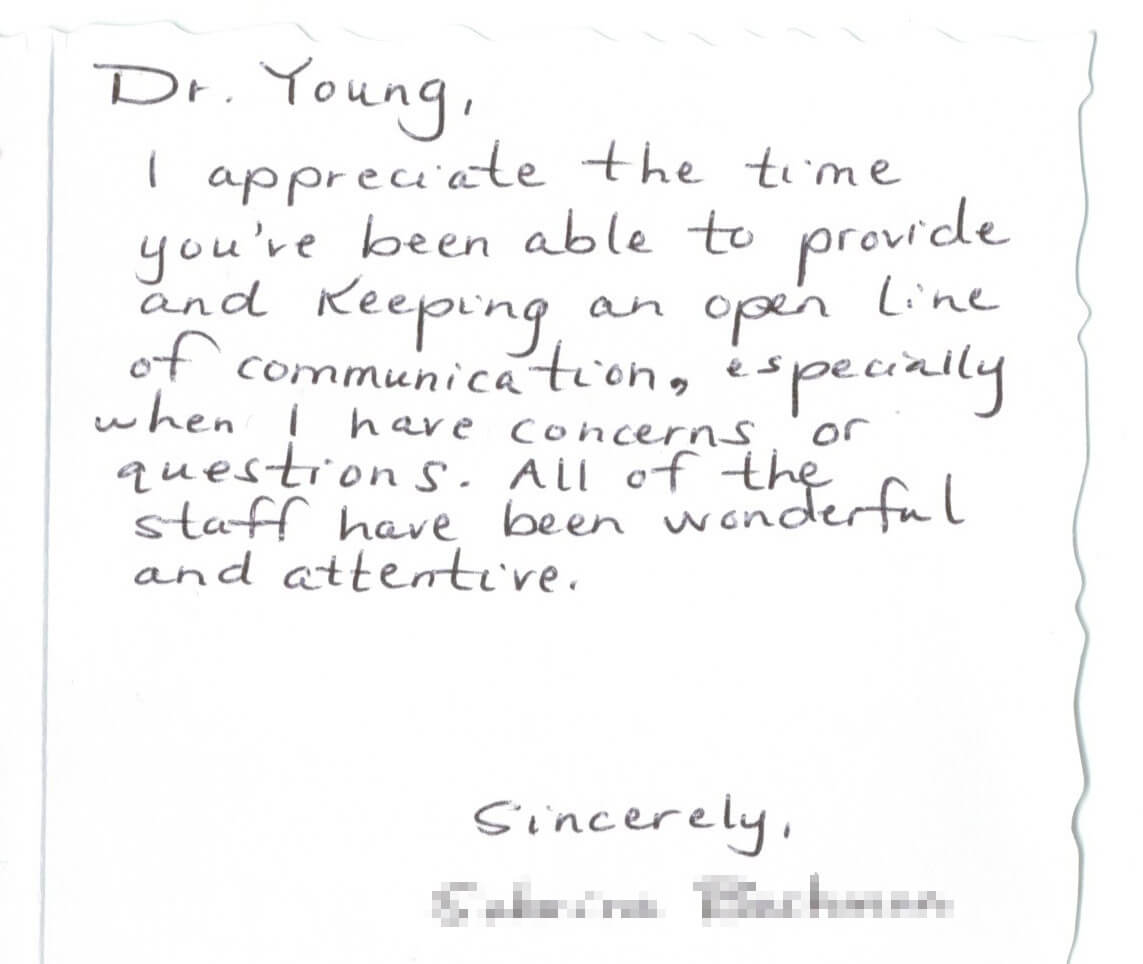 Dr. Young,
I appreciate the time
you've been able to provide
and Keeping an open line
of communication, especially
when I have concerns or
questions. All of the
staff have been wonderful
and attentive.
Sincerely,